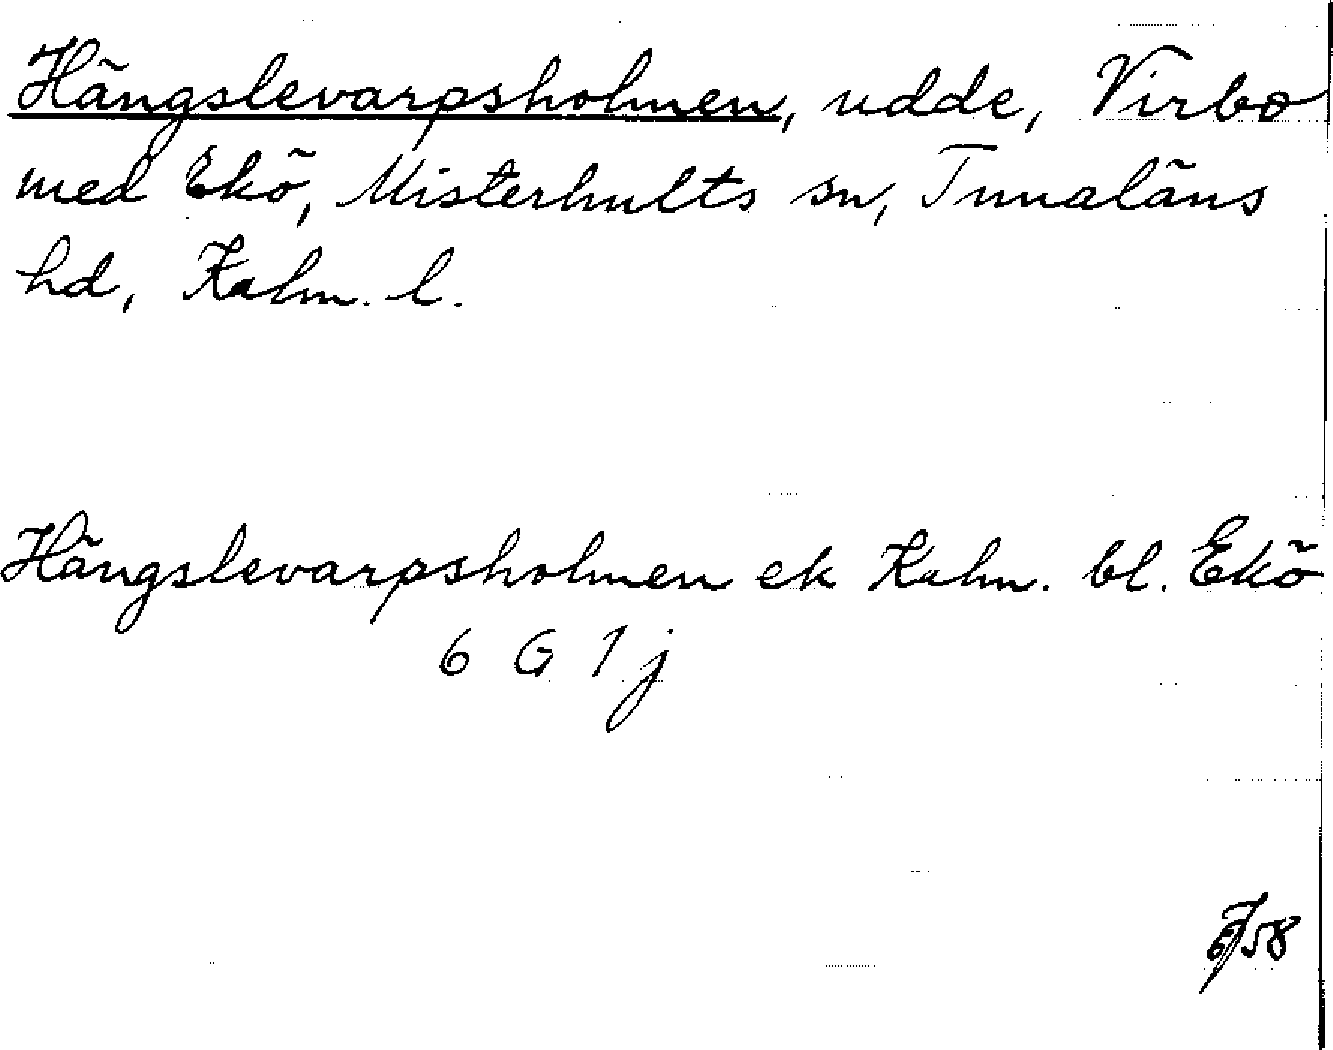 Hängslevarpsholmen, udde, Virbo
med Ekö, Misterhults sn, Tunaläns
hd, Kalm. l.
Hängslevarpsholmen ek Kalm. bl. Ekö
6 G 1 j
58